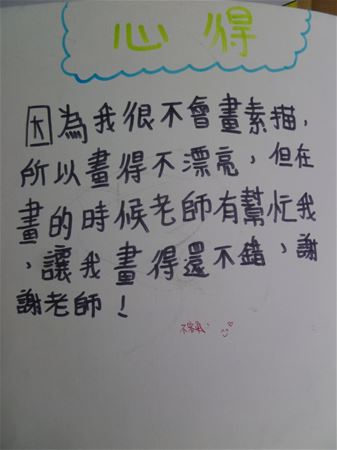 心得
因為我很不會畫素描,
所以畫得不漂亮,但在
畫的時候老師有幫忙我
,讓我畫得還不錯,謝
謝老師!
不客氣!